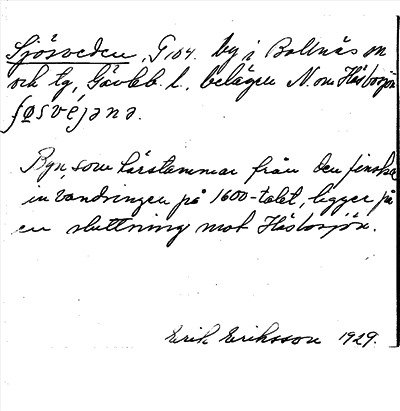 Sjösveden, G 104. by i Bollnäs sn
och tg, Gävleb. l., belägen N. om Häsbosjön
Byn, som härstammar från den finska
invandringen på 1600-talet, ligger på
en sluttning mot Häsbosjön.
Erik Eriksson 1929.